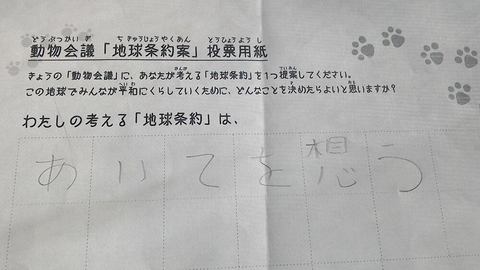 どうぶつかいぎ ちきゅうじょうやくあん とうひょうようし
動物会議「地球条約案」投票用紙
かんが ていあん
きょうの「動物会議」に、あなたが考える「地球条約」を1つ提案してください。
へいわ おも
この地球でみんなが平和にくらしていくために、どんなことを決めたらよいと思いますか?
わたしの考える「地球条約」は、
あいてを想う